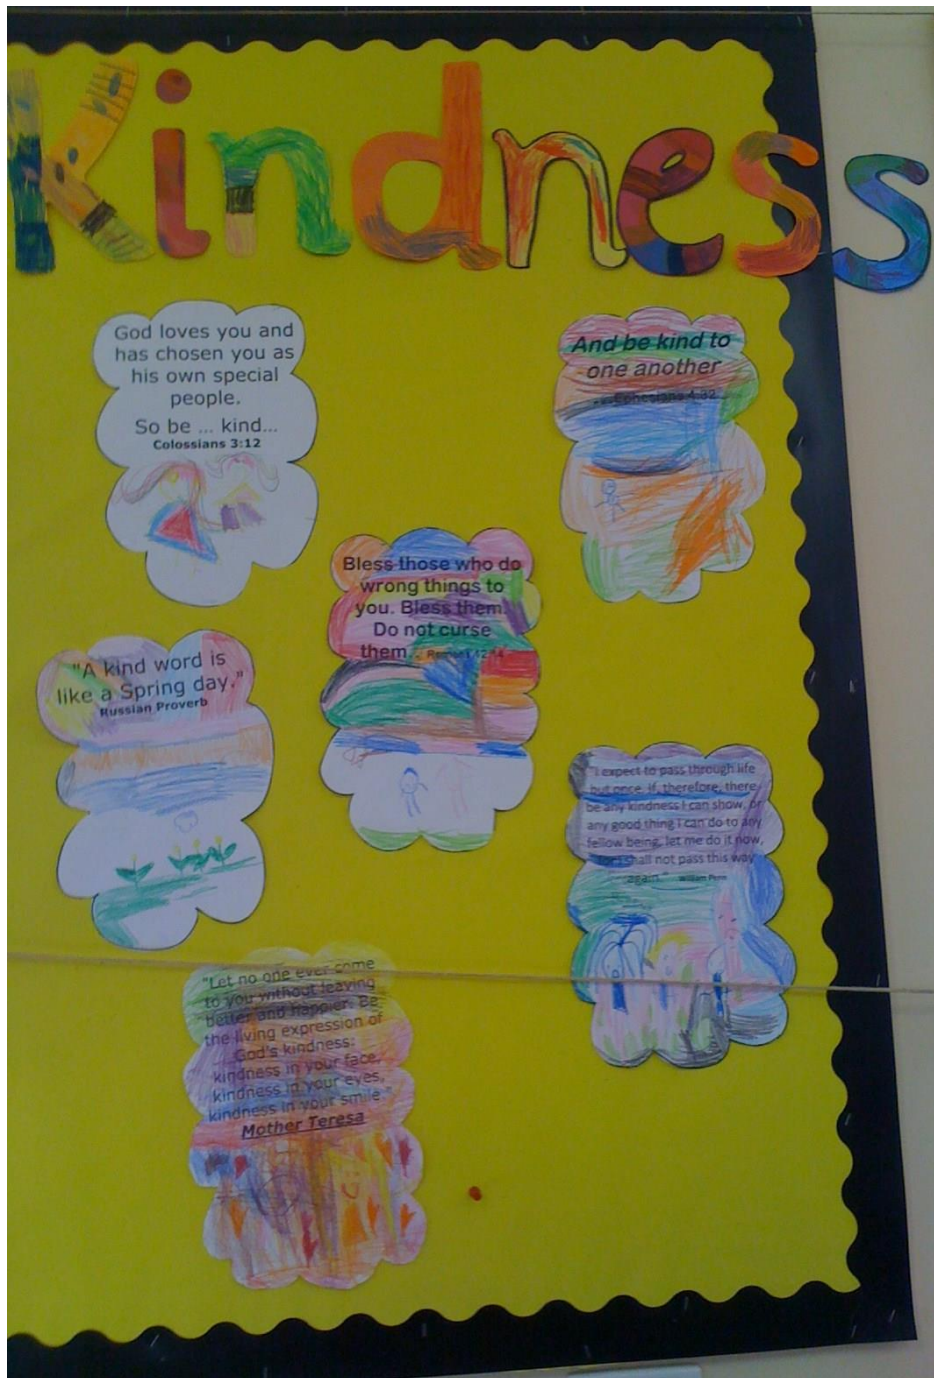 Kindness
God loves you and
has chosen you as
his own special
people.
So be ... kind...
Colossians 3:12
And be kind to
one another
Ephesians 4:32
Bless those who do
wrong things to
you. Bless them.
Do not curse
them.. Romans 12:14
"A kind word is
like a Spring day."
Russian Proverb
"I expect to pass through life
but once. If, therefore, there
be any kindness I can show, or
any good thing I can do to any
fellow being, let me do it now,
for I shall not pass this way
again." William Penn
"Let no one ever come
to you without leaving
better and happier. Be
the living expression of
God's kindness:
kindness in your face,
kindness in your eyes,
kindness in your smile."
Mother Teresa